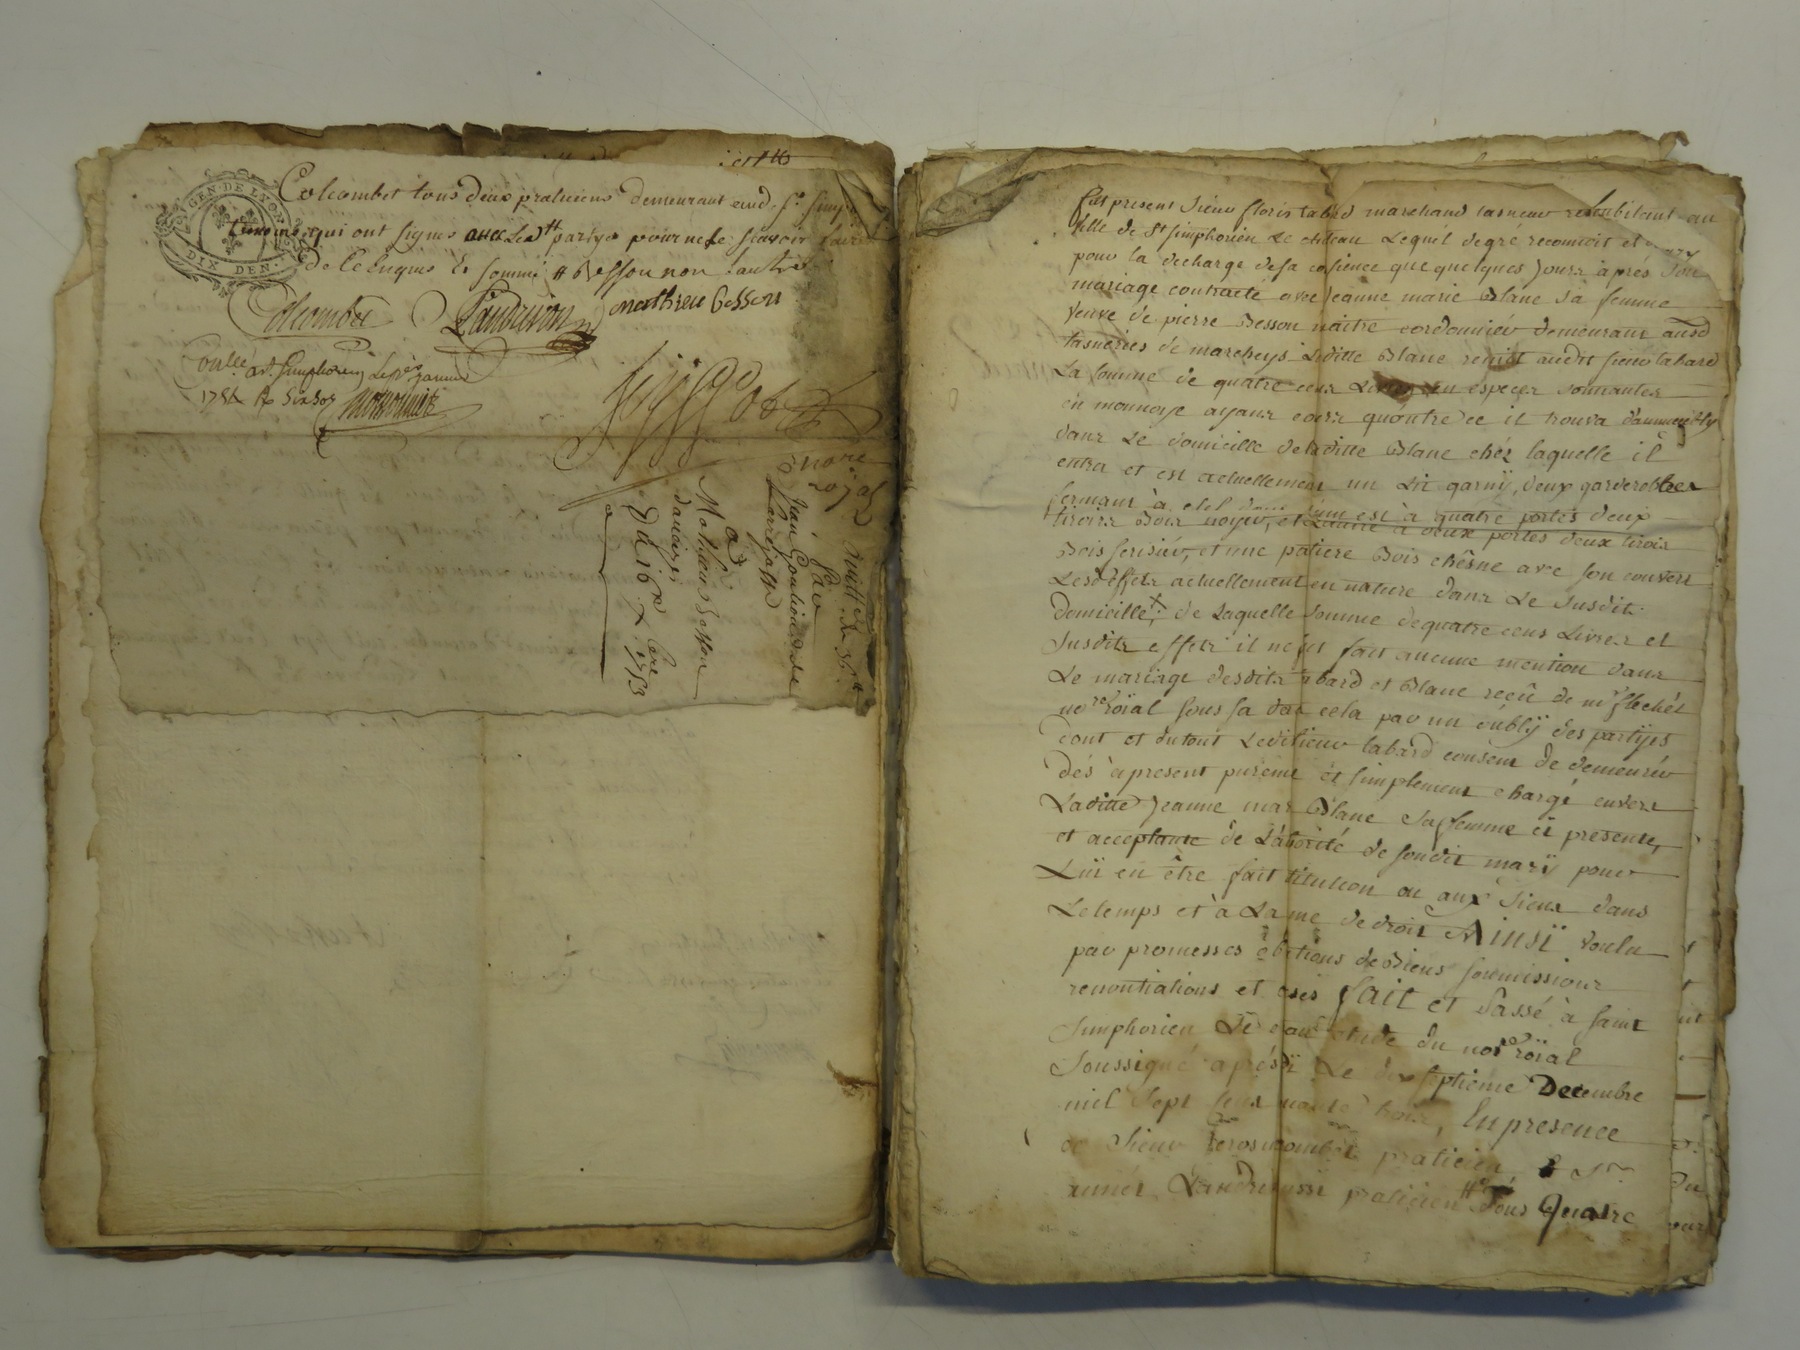 Colcombet tous deux praticiens demeurant aud. St Simph
temoins qui ont signés avec lesdtt partyes pour ne le sçavoir faire
de ce enquis et sommé # Besson non l'autre
GEN. DE LYON
DIX DEN.
Colcombet Landrivon mathieu besson
Conllé a St Simphorien le
1754 Rs six sos
nore
royal
quitt de
par
Jean
Larrejasse
a
Mathieu Besson
dauieizi
Du 16 Xbre 1753
fut present Sieur floris tabard marchand tasneur rehabitant au
ville de St simphorien Le château Lequel de gré reconnoit et
pour la decharge de sa cosience que quelques jours àprés son
mariage contracté avec jeanne marie Blanc sa femme
veuve de pierre Besson maitre cordonniér demeurant ausd
tasneries de marcheys Laditte Blanc remist audit sieur tabard
La somme de quatre cens Livres en especes sonnantes
en monnoye ayans cours quóntre ce il trouva
dans Le domicille de laditte Blanc chéz laquelle il
entra et est actuellement un Lit garnÿ, deux garderobbes
fermans à clef dont l'une est à quatre portes deux
tiroirs Bois noyer, et L'autre à deux portes deux tirois
Bois serisiér, et une patiere Bois chêsne avec son couvert
Lesd effets actuellement en nature dans Le susdit
domicille; de Laquelle somme de quatre cens Livres et
susdits effets il ne fut fait aucune mention dans
Le mariage desdits tabard et Blanc reçû de me flechét
nore roïal sous sa datte cela par un oublÿ des partÿes
dont et du tout Ledit sieur tabard consent de demeurér
dés àpresent purement et simplement chargé envers
Laditte jeanne marie Blanc sa femme ci presente,
et acceptante de L'atorité de son dit marÿ pour
Luï en être fait titution ou aux siens dans
Le temps et à La me de droit Ainsÿ voulu
par promesses obtions de Biens soumissions
renontiations et fait et Passé à saint
simphorien Le etude du nore roïal
soussigné aprésdi Le dix septieme Decembre
mil sept cens trois, En presence
de Sieur praticien, & Sr
praticien Tous Quatre